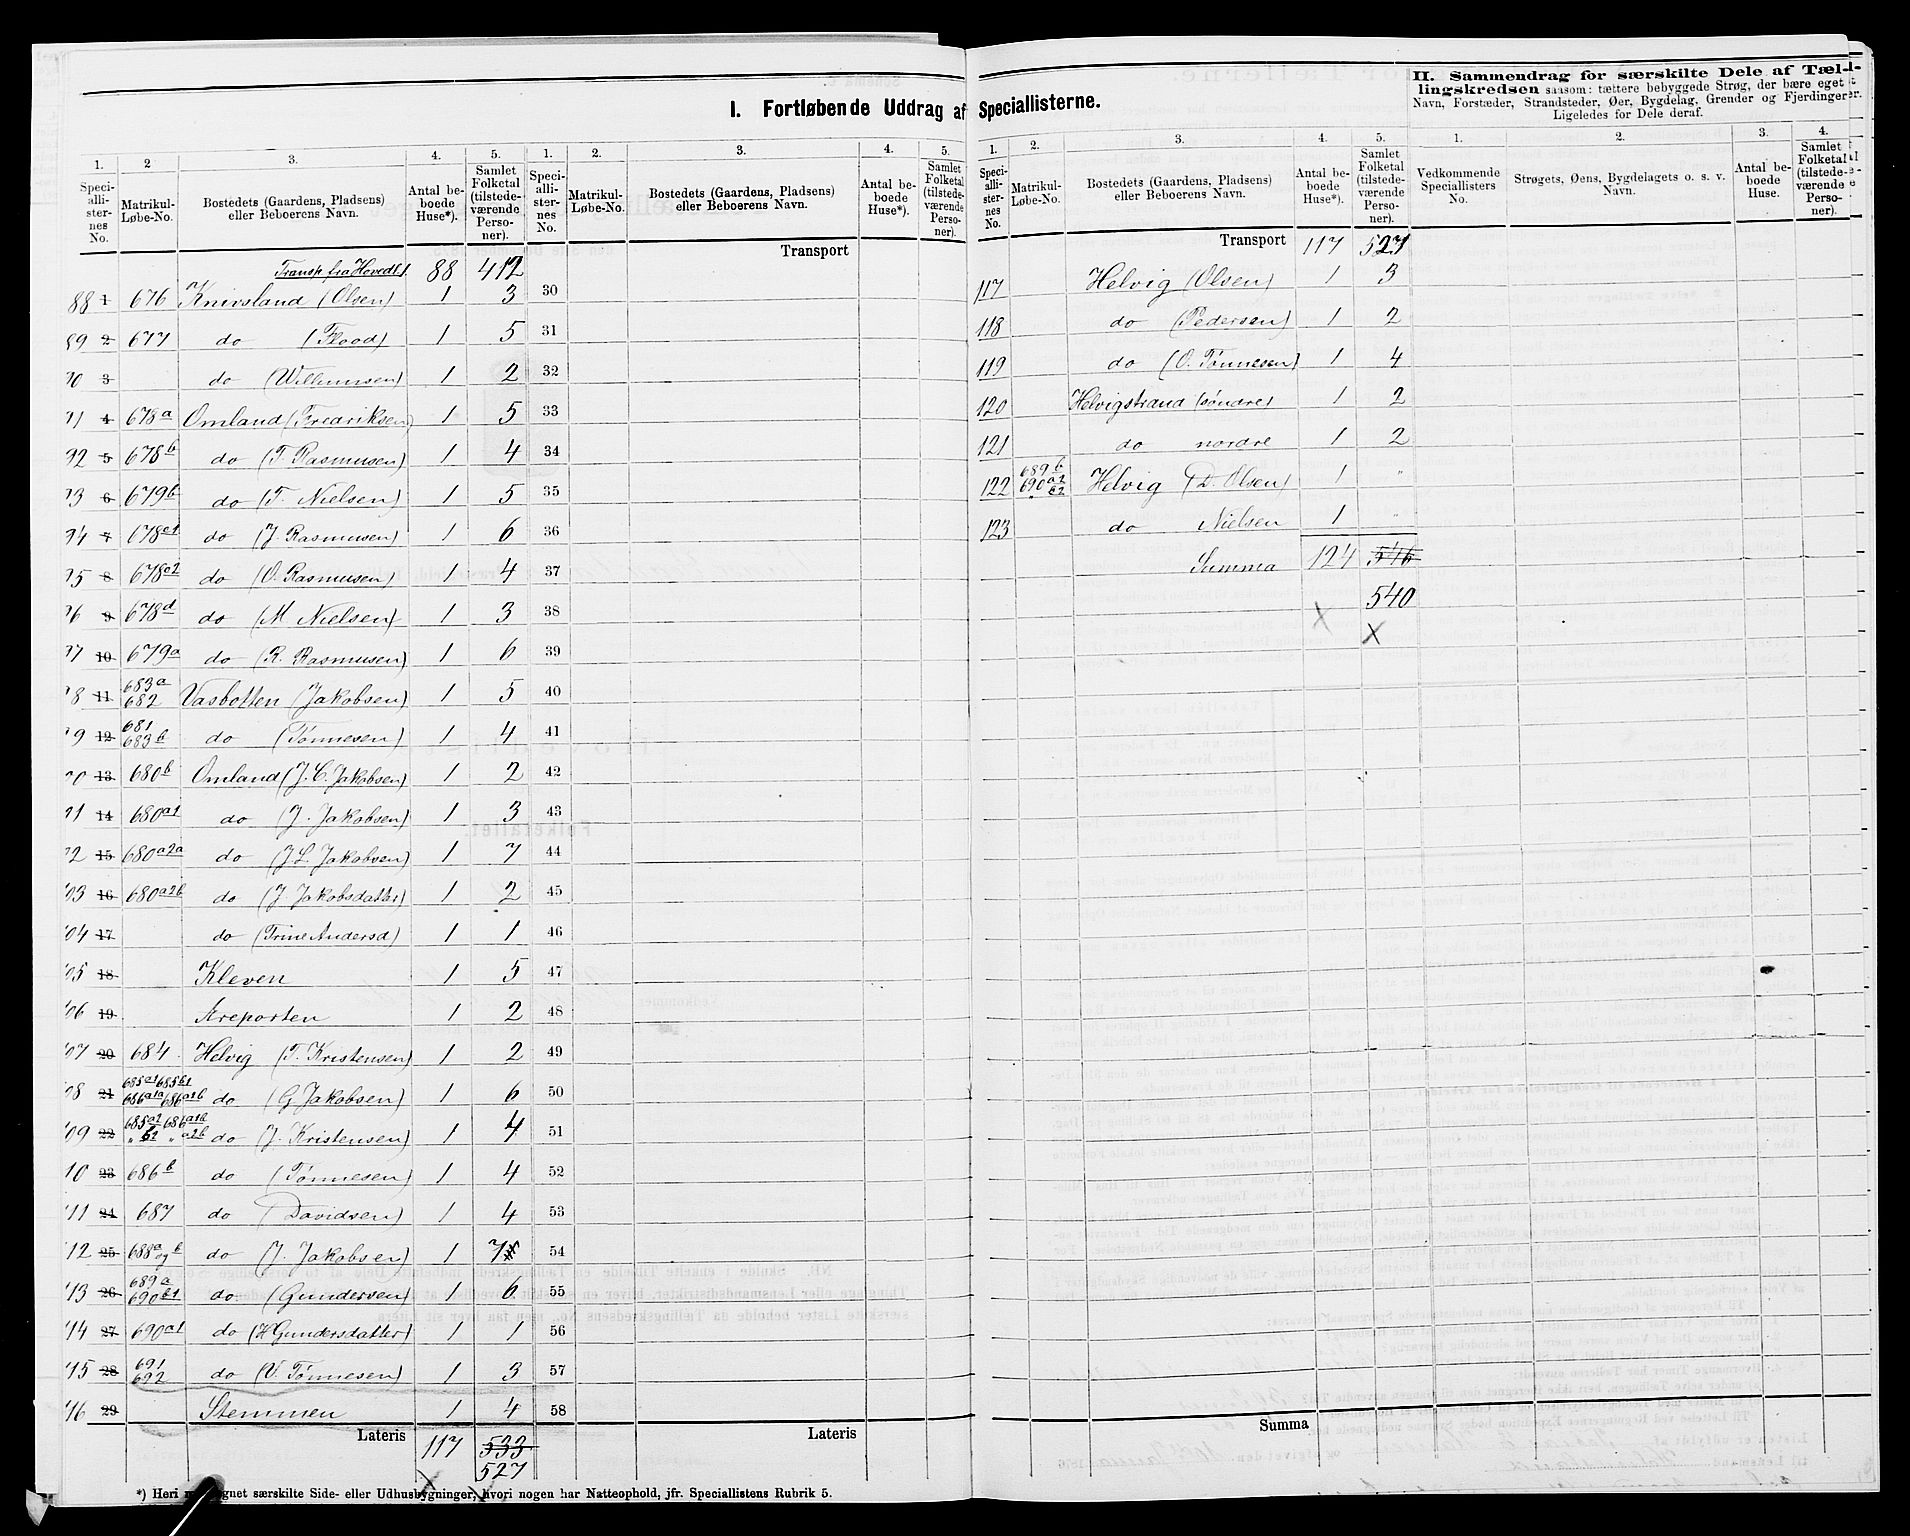 I. Fortløbende Uddrag af Speciallisterne.
1. 2 3. 4. 5. 1. 2. 3. 4. 5.
Speciallisternes No. Matrikul-Løbe-No. Bostedets (Gaardens, Pladsens) eller Beboerens Navn. Antal beboede Huse*). Samlet Folketal (tilstedeværende Personer). Speciallisternes No. Matrikul-Løbe-No. Bostedets (Gaardens, Pladsens) eller Beboerens Navn. Antal beboede Huse*). Samlet Folketal (tilstedeværende Personer).
Transport
Transp. fra Hovedl. 88 412
88 1 676 Knivsland (Olsen) 1 3 30
89 2 677 do (Flood) 1 5 31
90 3 do (Willumsen) 1 2 32
91 4 678a Omland (Fredriksen) 1 5 33
92 5 678b do (T. Rasmusen) 1 4 34
93 6 679b do (T. Nielsen) 1 5 35
94 7 678c1 do (J. Rasmusen) 1 6 36
95 8 678c2 do (O. Rasmusen) 1 4 37
96 9 678d do (M Nielsen) 1 3 38
97 10 679a do (R. Rasmusen) 1 6 39
98 11 683a 682 Vasbotten (Jakobsen) 1 5 40
99 12 681 683b do (Tönnesen) 1 4 41
00 13 680b Omland (J. C. Jakobsen) 1 2 42
01 14 680a1 do (J. Jakobsen) 1 3 43
02 15 680a2a do (J L. Jakobsen) 1 7 44
03 16 680a2b do (J Jakobsdatter) 1 2 45
04 17 do (Trine Andersd) 1 1 46
05 18 Kleven 1 5 47
06 19 Areporten 1 2 48
07 20 684 Helvig (T. Kristensen) 1 2 49
08 21 685a1 685b1 686a1a 686a1b do (G Jakobsen) 1 6 50
09 22 685a2 686a1b " b2 " a2b do (J. Kristensen) 1 4 51
10 23 686b do (Tönnesen) 1 4 52
11 24 687 do (Davidsen) 1 4 53
12 25 688a og b do (J. Jakobsen) 1 7 54
13 26 689a 690b1 do (Gundersen) 1 6 55
14 27 690a1 do (H Gundersdatter) 1 1 56
15 28 691 692 do (V. Tönnesen) 1 3 57
16 29 Stemmen 1 4 58
Lateris 117 533 Lateris
527
*) Heri   særskilte Side- eller Udhusbygninger, hvori nogen har Natteophold, jfr. Speciallistens Rubrik 5.
1. 2. 3. 4. 5.
Speciallisternes No. Matrikul-Løbe-No. Bostedets (Gaardens, Pladsens) eller Beboerens Navn. Antal beboede Huse*). Samlet Folketal (tilstedeværende Personer).
Transport 117 527
117 Helvig (Olsen) 1 3
118 do (Pedersen) 1 2
119 do (O. Tönnesen) 1 4
120 Helvigstrand (söndre) 1 2
121 do nordre 1 2
122 689b 690a2 " c2 Helvig (D. Olsen) 1 "
123 do Nielsen 1 "
Summa 124 546
540
X X
Summa
II. Sammendrag for særskilte Dele af Tællingskredsen saasom: tættere bebyggede Strøg, der bære eget Navn, Forstæder, Strandsteder, Øer, Bygdelag, Grender og Fjerdinger. Ligeledes for Dele deraf.
1. 2. 3. 4.
Vedkommende Speciallisters No. Strøgets, Øens, Bygdelagets o. s. v. Navn. Antal beboede Huse. Samlet Folketal (tilstedeværende Personer).